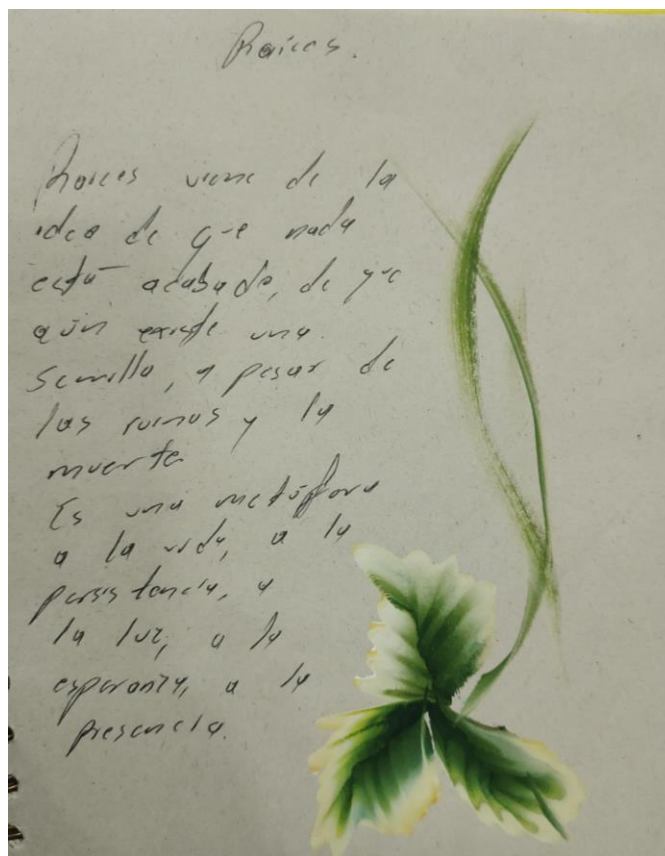 Raíces.
Raíces viene de la
idea de que nada
está acabado, de que
aún existe una
semilla, a pesar de
las ruinas y la
muerte
Es una metáfora
a la vida, a la
persistencia, a
la luz, a la
esperanza, a la
presencia.